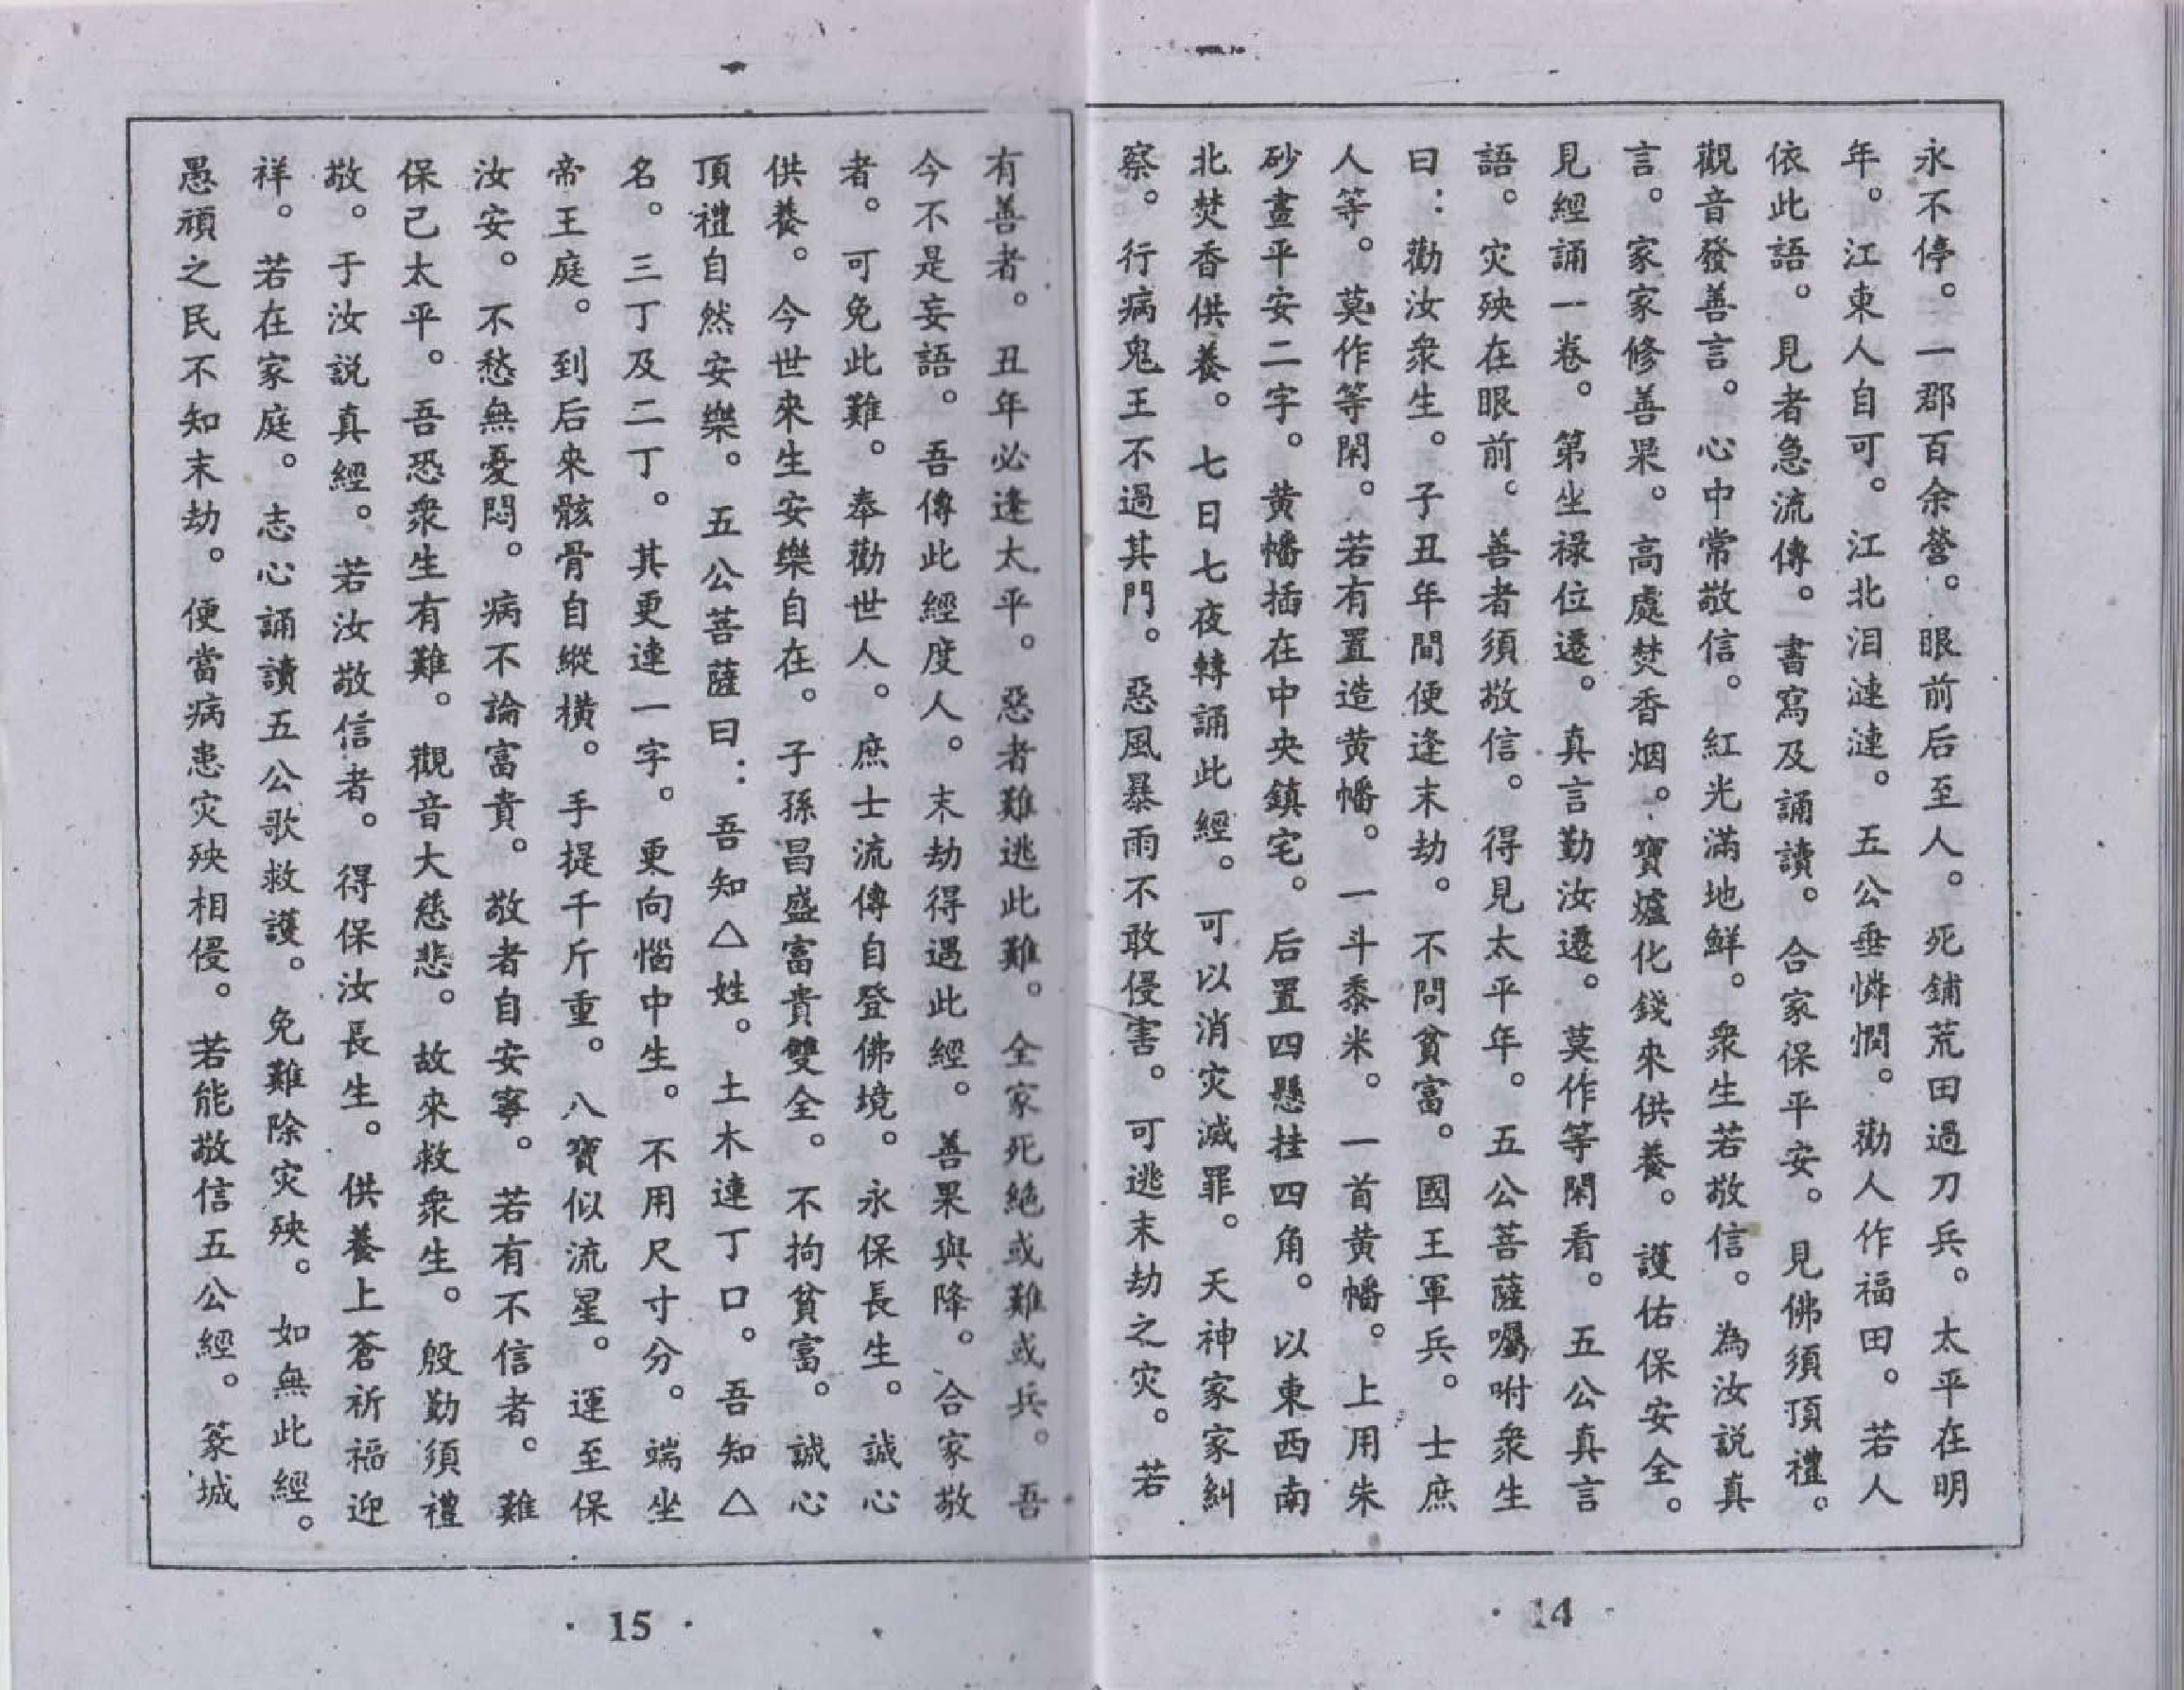 永不停。一郡百余營。眼前后至人。死鋪荒田過刀兵。太平在明
年。江東人自可。江北泪漣漣。五公垂憐憫。勸人作福田。若人
依此語。見者急流傳。書寫及誦讀。合家保平安。見佛須頂禮。
觀音發善言。心中常敬信。紅光滿地鮮。衆生若敬信。為汝説真
言。家家修善果。高處焚香烟。寶爐化錢來供養。護佑保安全。
見經誦一卷。第坐禄位遷。真言勤汝遷。莫作等閑看。五公真言
語。灾殃在眼前。善者須敬信。得見太平年。五公菩薩囑咐衆生
曰：勸汝衆生。子丑年間便逢末劫。不問貧富。國王軍兵。士庶
人等。莫作等閑。若有置造黄幡。一斗黍米。一首黄幡。上用朱
砂畫平安二字。黄幡插在中央鎮宅。后置四懸挂四角。以東西南
北焚香供養。七日七夜轉誦此經。可以消灾滅罪。天神家家糾
察。行病鬼王不過其門。惡風暴雨不敢侵害。可逃末劫之灾。若
· 14 ·
有善者。丑年必逢太平。惡者難逃此難。全家死絶或難或兵。吾
今不是妄語。吾傳此經度人。末劫得遇此經。善果與降。合家敬
者。可免此難。奉勸世人。庶士流傳自登佛境。永保長生。誠心
供養。今世來生安樂自在。子孫昌盛富貴雙全。不拘貧富。誠心
頂禮自然安樂。五公菩薩曰：吾知△姓。土木連丁口。吾知△
名。三丁及二丁。其更連一字。更向惱中生。不用尺寸分。端坐
帝王庭。到后來骸骨自縱横。手提千斤重。八寶似流星。運至保
汝安。不愁無憂悶。病不論富貴。敬者自安寧。若有不信者。難
保己太平。吾恐衆生有難。觀音大慈悲。故來救衆生。殷勤須禮
敬。于汝説真經。若汝敬信者。得保汝長生。供養上蒼祈福迎
祥。若在家庭。志心誦讀五公歌救護。免難除灾殃。如無此經。
愚頑之民不知末劫。便當病患灾殃相侵。若能敬信五公經。篆城
· 15 ·